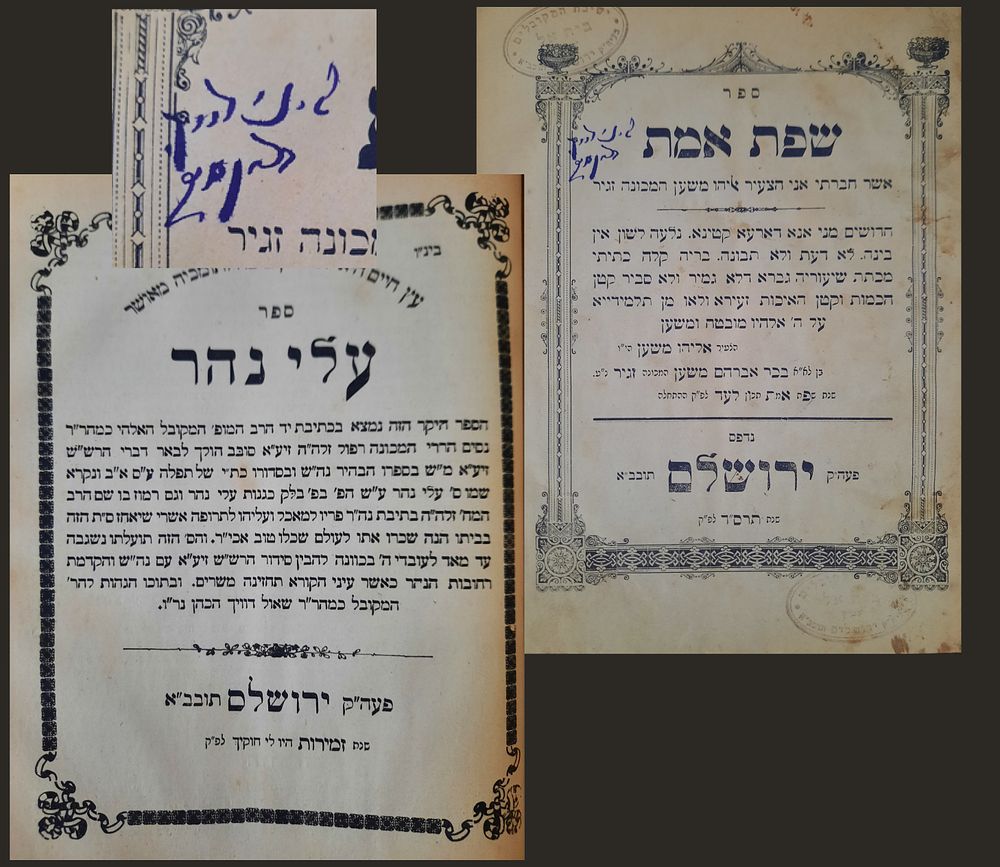 ספר
שפת אמת
אשר חברתי אני הצעיר אליהו משען המכונה זגיר
הדושים מני אנא דארעא קטינא. נלעה לשון אין
בינה. לא דעת ולא תבונה. בריה קלה כתיתי
מכתת שיעוריה גברא דלא גמיר ולא סביר קטן
הכמות וקטן האיכות זעירא ולאו מן תלמידייא
על ה' אלהיו מובטה ומשען
אליהו משען הי"ו
בן לא"א בכר אברהם משען המכונה זגיר נ"ע.
שנת שפת אמת תכון לעד לפ"ק ההתחלה
נדפס
פעה"ק ירושלם תובב"א
שנת תרס"ד לפ"ק
מכונה זגיר
בינ"ו
עץ חיים
מאושר
ספר
עלי נהר
הספר היקר הזה נמצא בכתיבת יד הרב המופ' המקובל האלהי כמהר"ר
נסים הררי המכונה רפול זלה"ה זיע"א סובב הולך לבאר דברי הרש"ש
זיע"א מ"ש בספרו הבהיר נה"ש ובסדורו כת"י של תפלה ע"ס א"ב ונקרא
שמו ס' עלי נהר ע"ש הפ' בפ' בלק כגנות עלי נהר וגם רמוז בו שם הרב
המח' זלה"ה בתיבת נה"ר פריו למאכל ועליהו לתרופה אשרי שיאחז ס"ת הזה
בביתו הנה שכרו אתו לעולם שכלו טוב אכי"ר. והס' הזה תועלתו נשגבה
עד מאד לעובדי ה' בכוונה להבין סידור הרש"ש זיע"א עם נה"ש והקדמת
רחובות הנהר כאשר עיני הקורא תחזינה משרים. ובתוכו הגהות להר'
המקובל כמהר"ר שאול דוויך הכהן נר"ו.
פעה"ק ירושלם תובב"א
שנת זמירות היו לי חוקיך לפ"ק